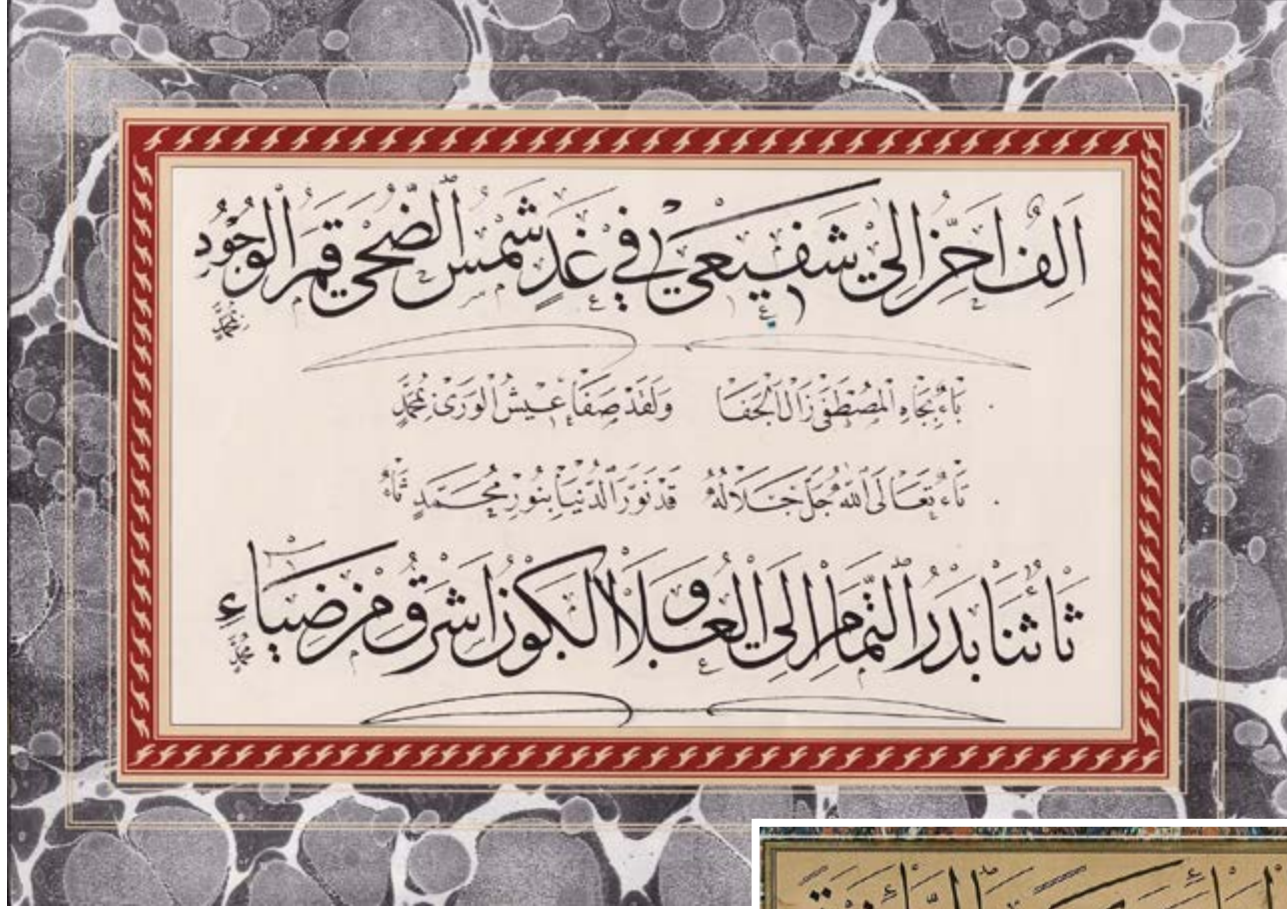 الف احن الى شفيعي في غد شمس الضحى قمر الوجود محمد
باء بجاه المصطفى زال الجفا ولقد صفا عيش الورى بمحمد
تاء تعالى الله جل جلاله قد نور الدنيا بنور محمد ثاء
ثا ثنا بدر التمام الى العلا والكون اشرق من ضياء محمد